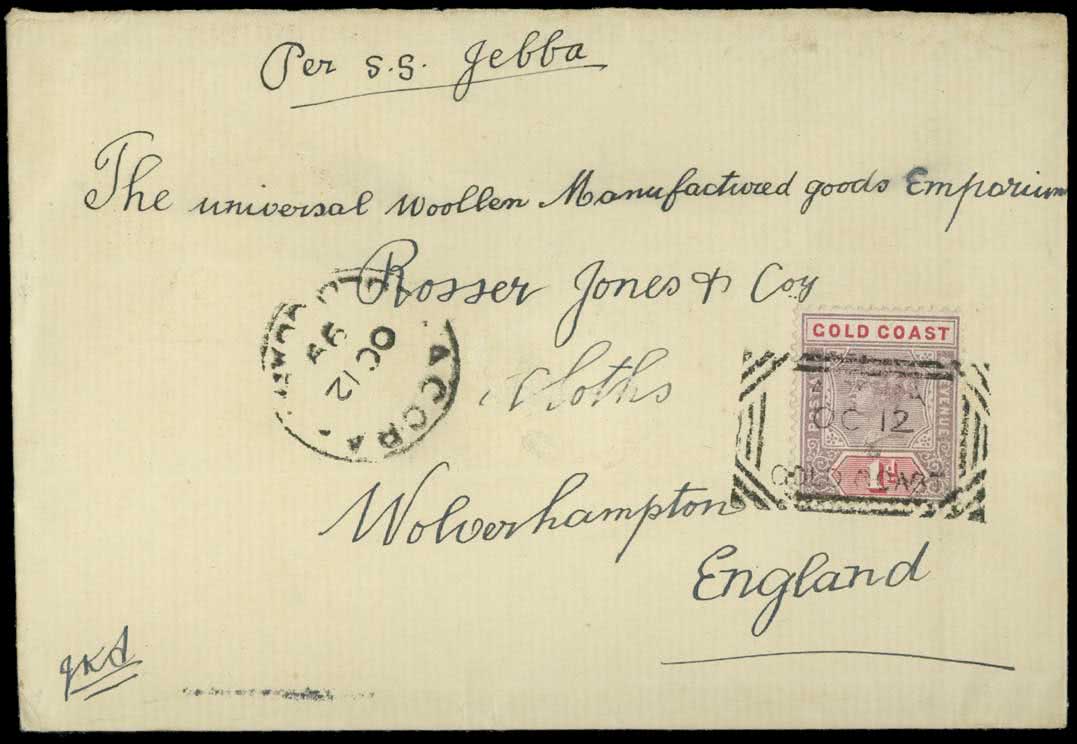 Per S.S. Jebba
The universal Woollen Manufactured goods Emporium
Rosser Jones & Coy
Cloths
Wolverhampton
England
JKA
GOLD COAST
POSTAGE
REVENUE
1d
OC 12
GOLD COAST
ACCRA
OC 12
99